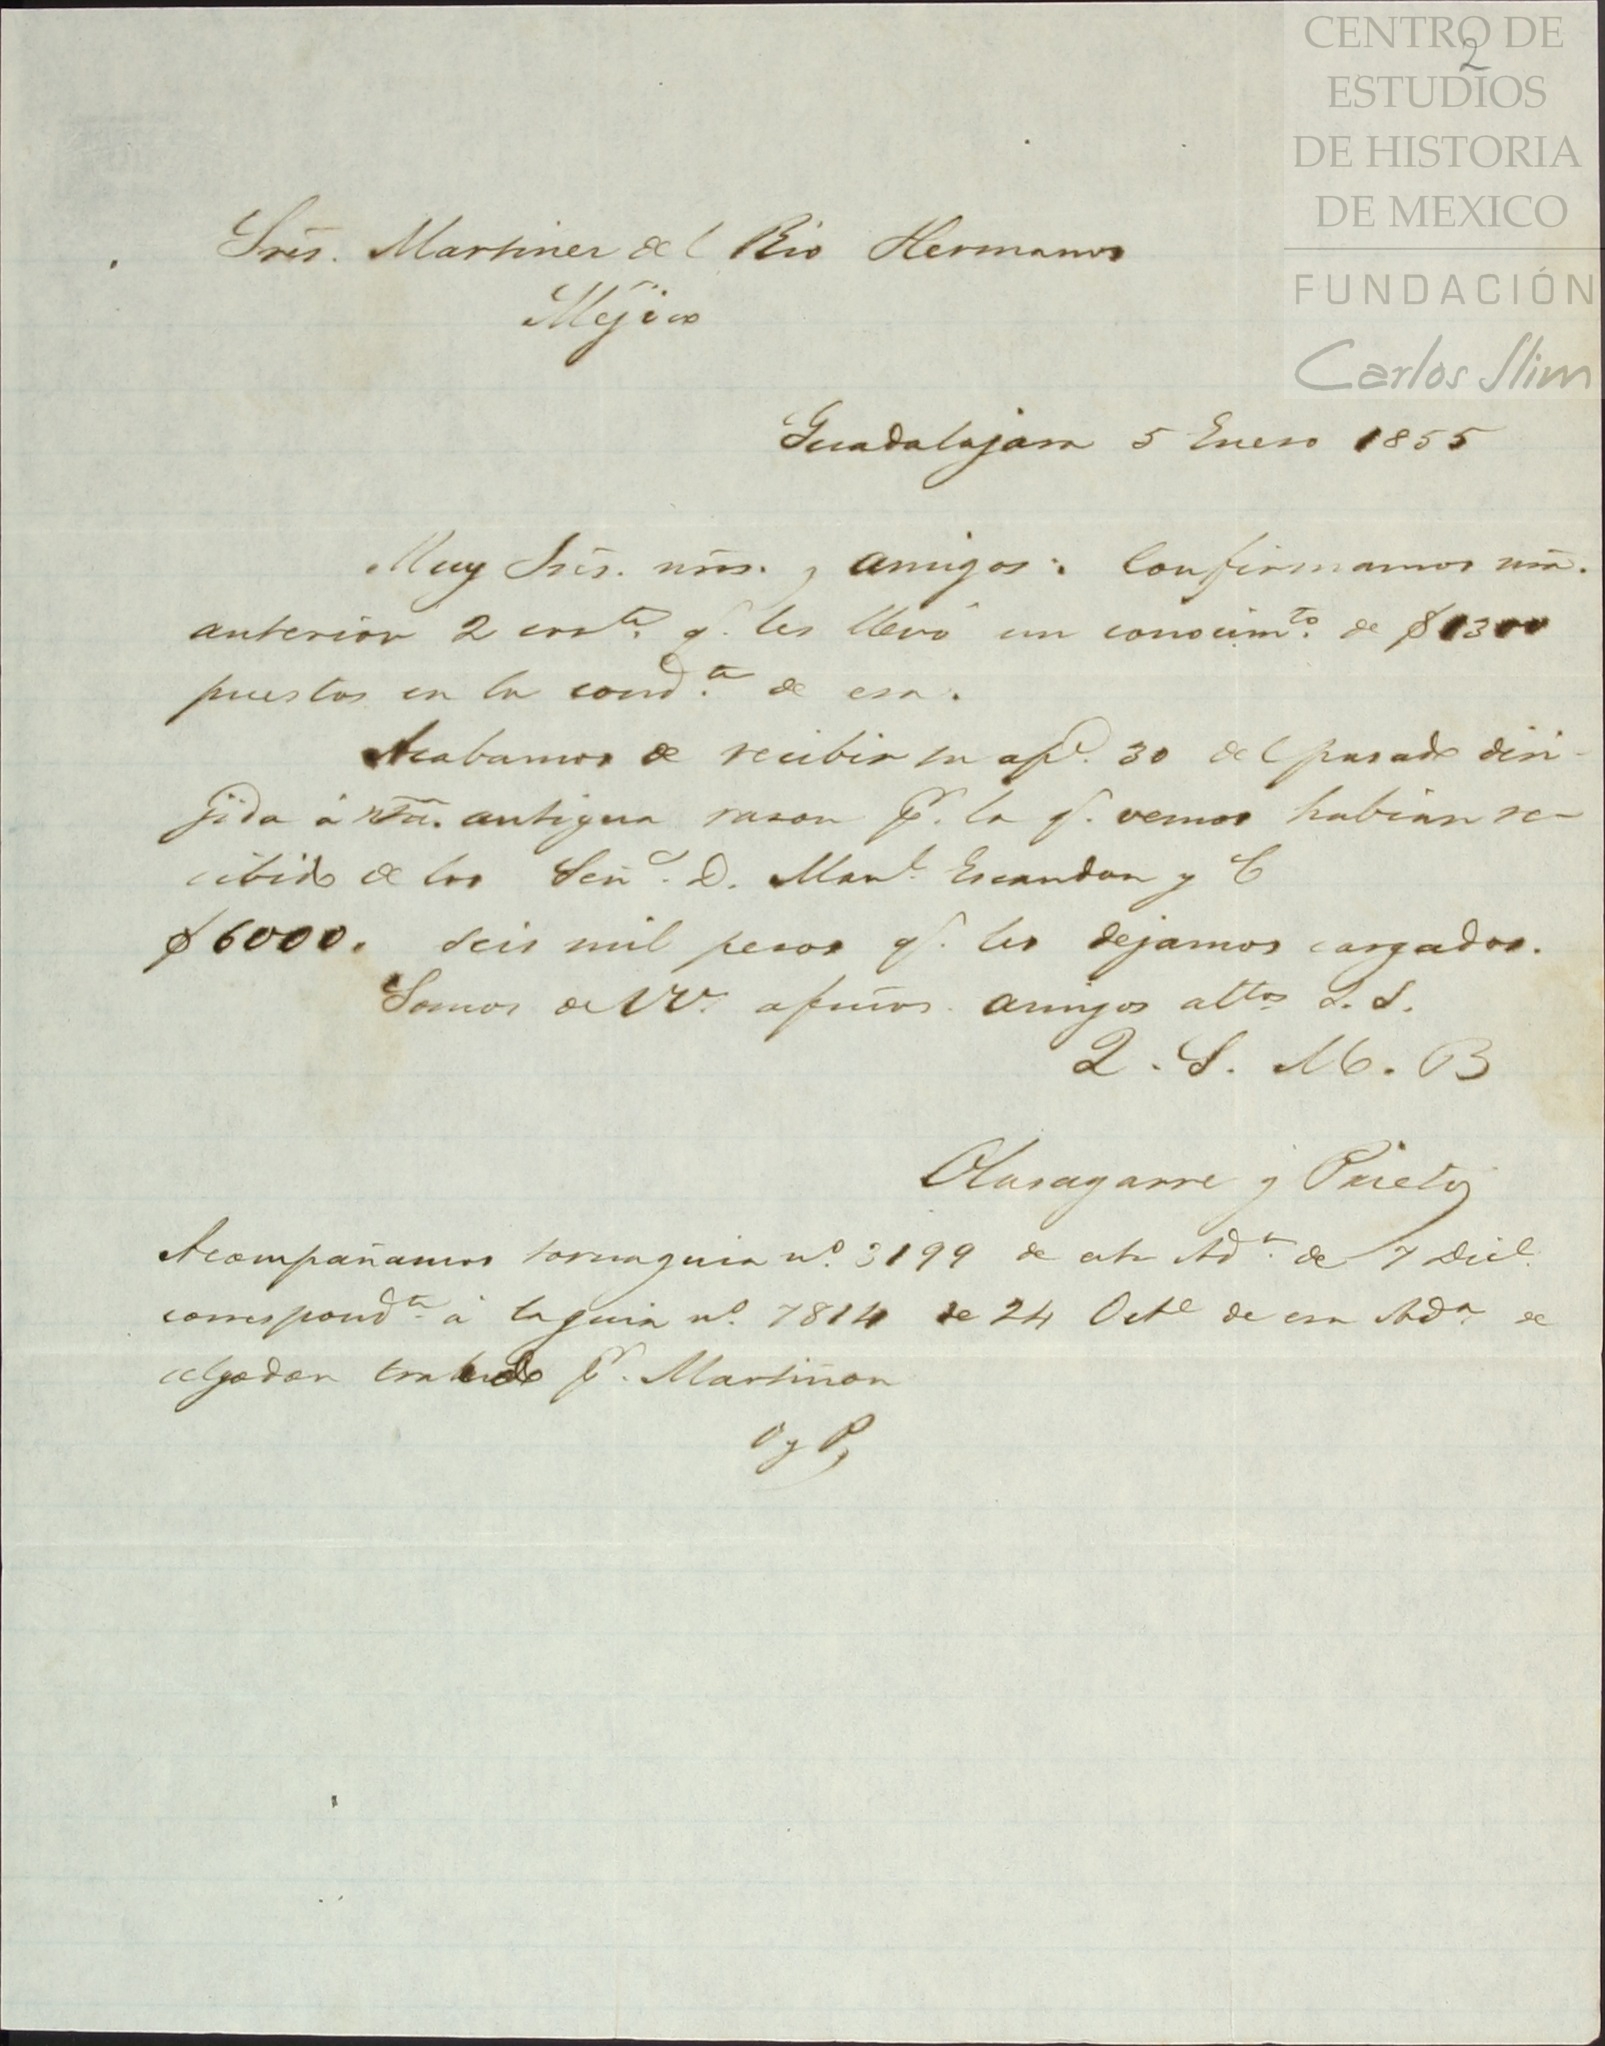 CENTRO DE
2
ESTUDIOS
DE HISTORIA
DE MEXICO
FUNDACIÓN
Carlos Slim
Sres. Martinez del Rio Hermanos
Méjico
Guadalajara 5 Enero 1855
Muy Sres. nros. y amigos: Confirmamos nra.
anterior 2 corrte. q. les llevó un conocimto. de $1300
puestos en la condta. de esa.
Acabamos de recibir su apda. 30 del pasado diri-
jida á nra. antigua razon pr. la q. vemos habian re-
cibido de los Señs. D. Manl. Escandon y C
$6000. seis mil pesos q. les dejamos cargados.
Somos de VV. afmos. amigos attos. S. S.
Q. S. M. B
Olasagarre y Prieto
Acompañamos tornaguia no. 3199 de esta Ada. de 7 Dice.
correspondte. á la guia no. 7814 de 24 Octe. de esa Ada. de
algodon traido pr. Martiñon
O y P